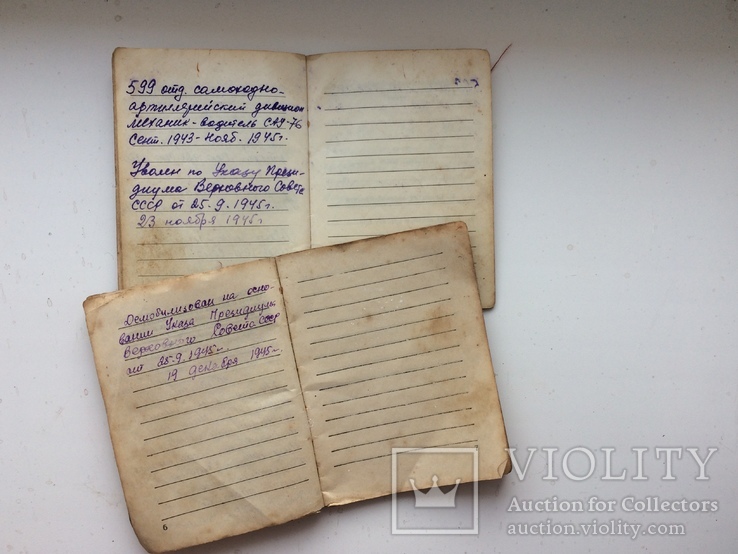 599 отд. самоходно-
артиллерийский дивизион
механик-водитель САУ-76
Сент. 1943-Нояб. 1945г.
Уволен по Указу Прези-
диума Верховного Совета
СССР от 25.9.1945г.
23 ноября 1945г
Демобилизован на осно-
вании Указа Президиума
Верховного Совета СССР
от 25.9.1945г.
19 декабря 1945г.
6
VIOLITY
Auction for Collectors
auction.violity.com